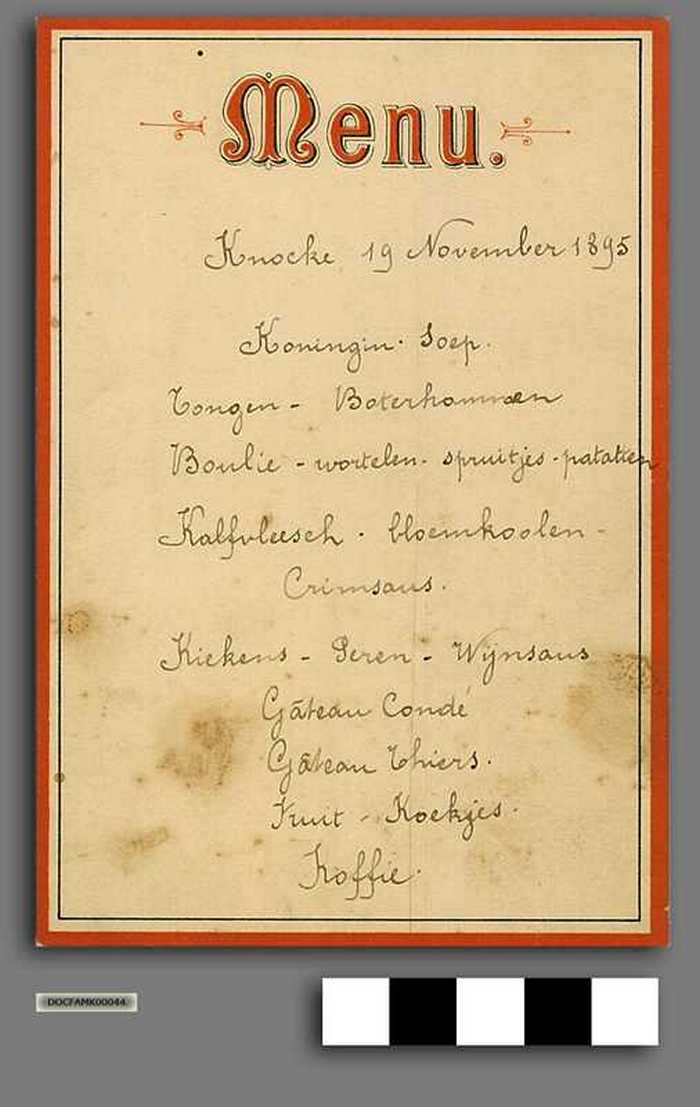 Menu.
Knocke 19 November 1895
Koningin. Soep.
Tongen - Boterhammen
Boulie - wortelen - spruitjes - patatten
Kalfvleesch. bloemkoolen -
Crimsaus.
Kiekens - Peren - Wijnsaus
Gâteau Condé
Gâteau Thiers.
Fruit - Koekjes.
Koffie.
DOCFAMK00044